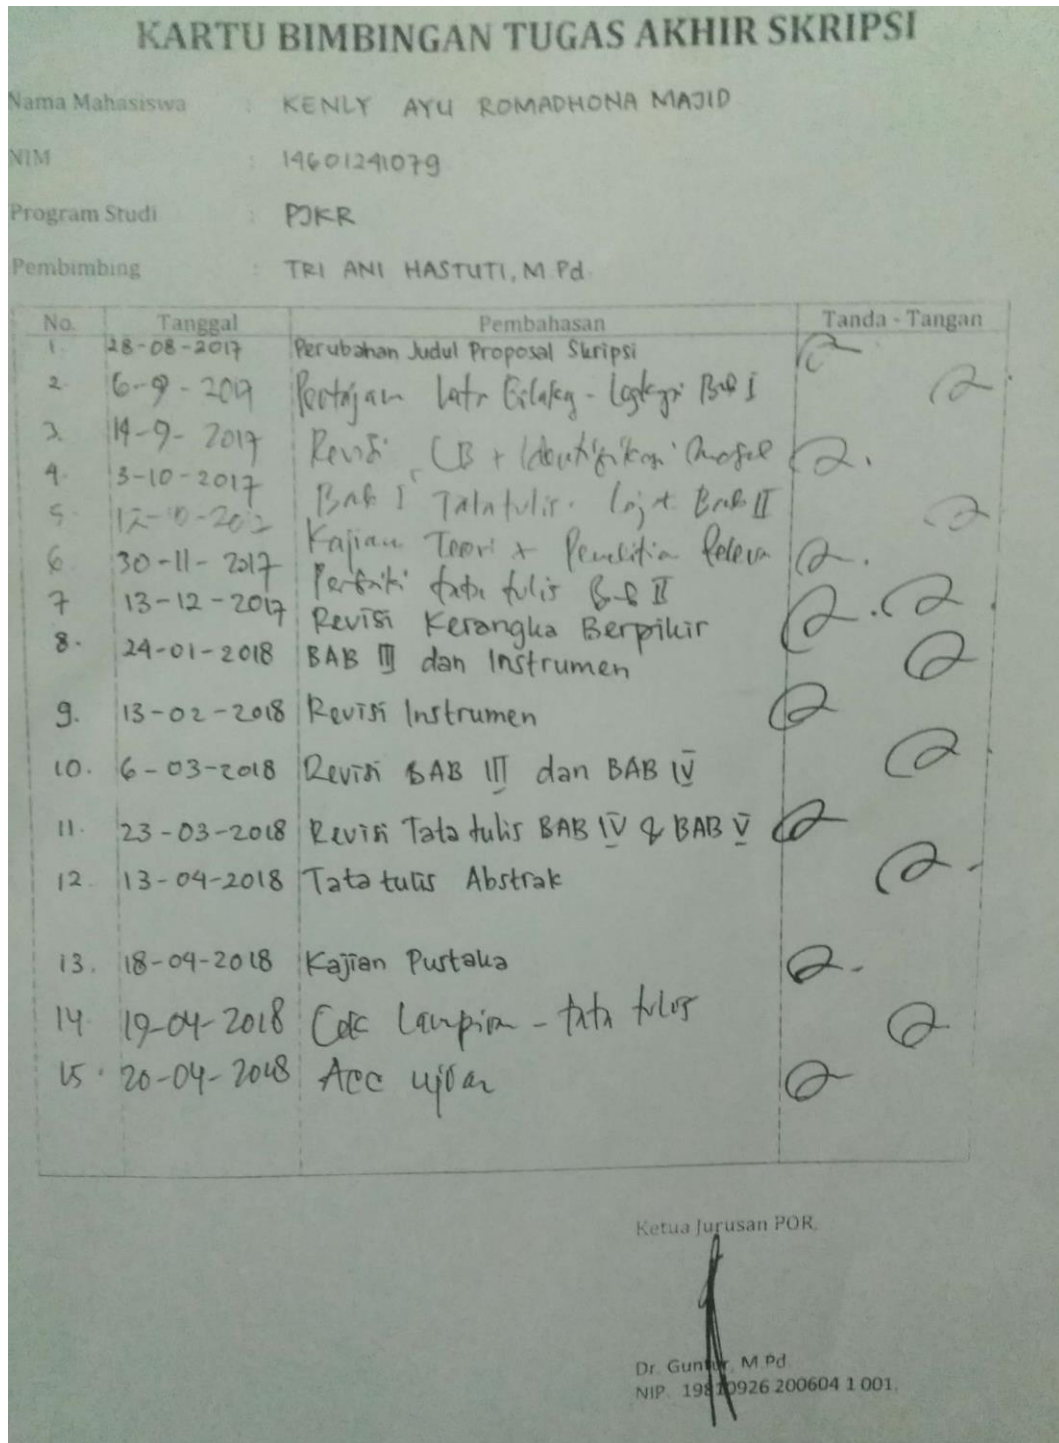 KARTU BIMBINGAN TUGAS AKHIR SKRIPSI
Nama Mahasiswa : KENLY AYU ROMADHONA MAJID
NIM : 14601241079
Program Studi : PJKR
Pembimbing : TRI ANI HASTUTI, M.Pd.
No. Tanggal Pembahasan Tanda - Tangan
1. 28-08-2017 Perubahan Judul Proposal Skripsi
2. 6-9-2017 Pertajam Bab I
3. 14-9-2017 Revisi LB +
4. 3-10-2017 Bab I Tata tulis. Bab II
5. Kajian Teori + Penelitian
6. 30-11-2017 Perbaiki tata tulis Bab II
7 13-12-2017 Revisi Kerangka Berpikir
8. 24-01-2018 BAB III dan Instrumen
9. 13-02-2018 Revisi Instrumen
10. 6-03-2018 Revisi BAB III dan BAB IV
11. 23-03-2018 Revisi Tata tulis BAB IV & BAB V
12. 13-04-2018 Tata tulis Abstrak
13. 18-04-2018 Kajian Pustaka
14. 19-04-2018 Cek Lampiran - tata tulis
15. 20-04-2018 Acc ujian
Ketua Jurusan POR,
Dr. Guntur, M.Pd
NIP. 19810926 200604 1 001.